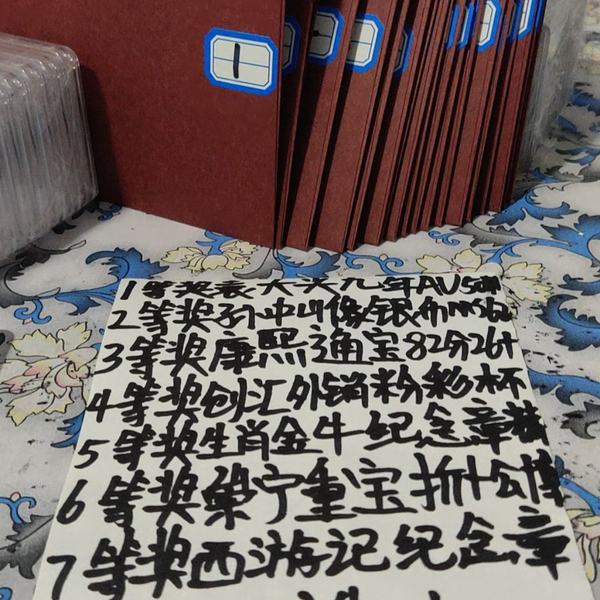 1
1等奖袁大头九年AU50
2等奖孙中山像银币MS62
3等奖康熙通宝82分26+
4等奖创汇外销粉彩杯
5等奖生肖金牛纪念章
6等奖崇宁重宝折十公博
7等奖西游记纪念章